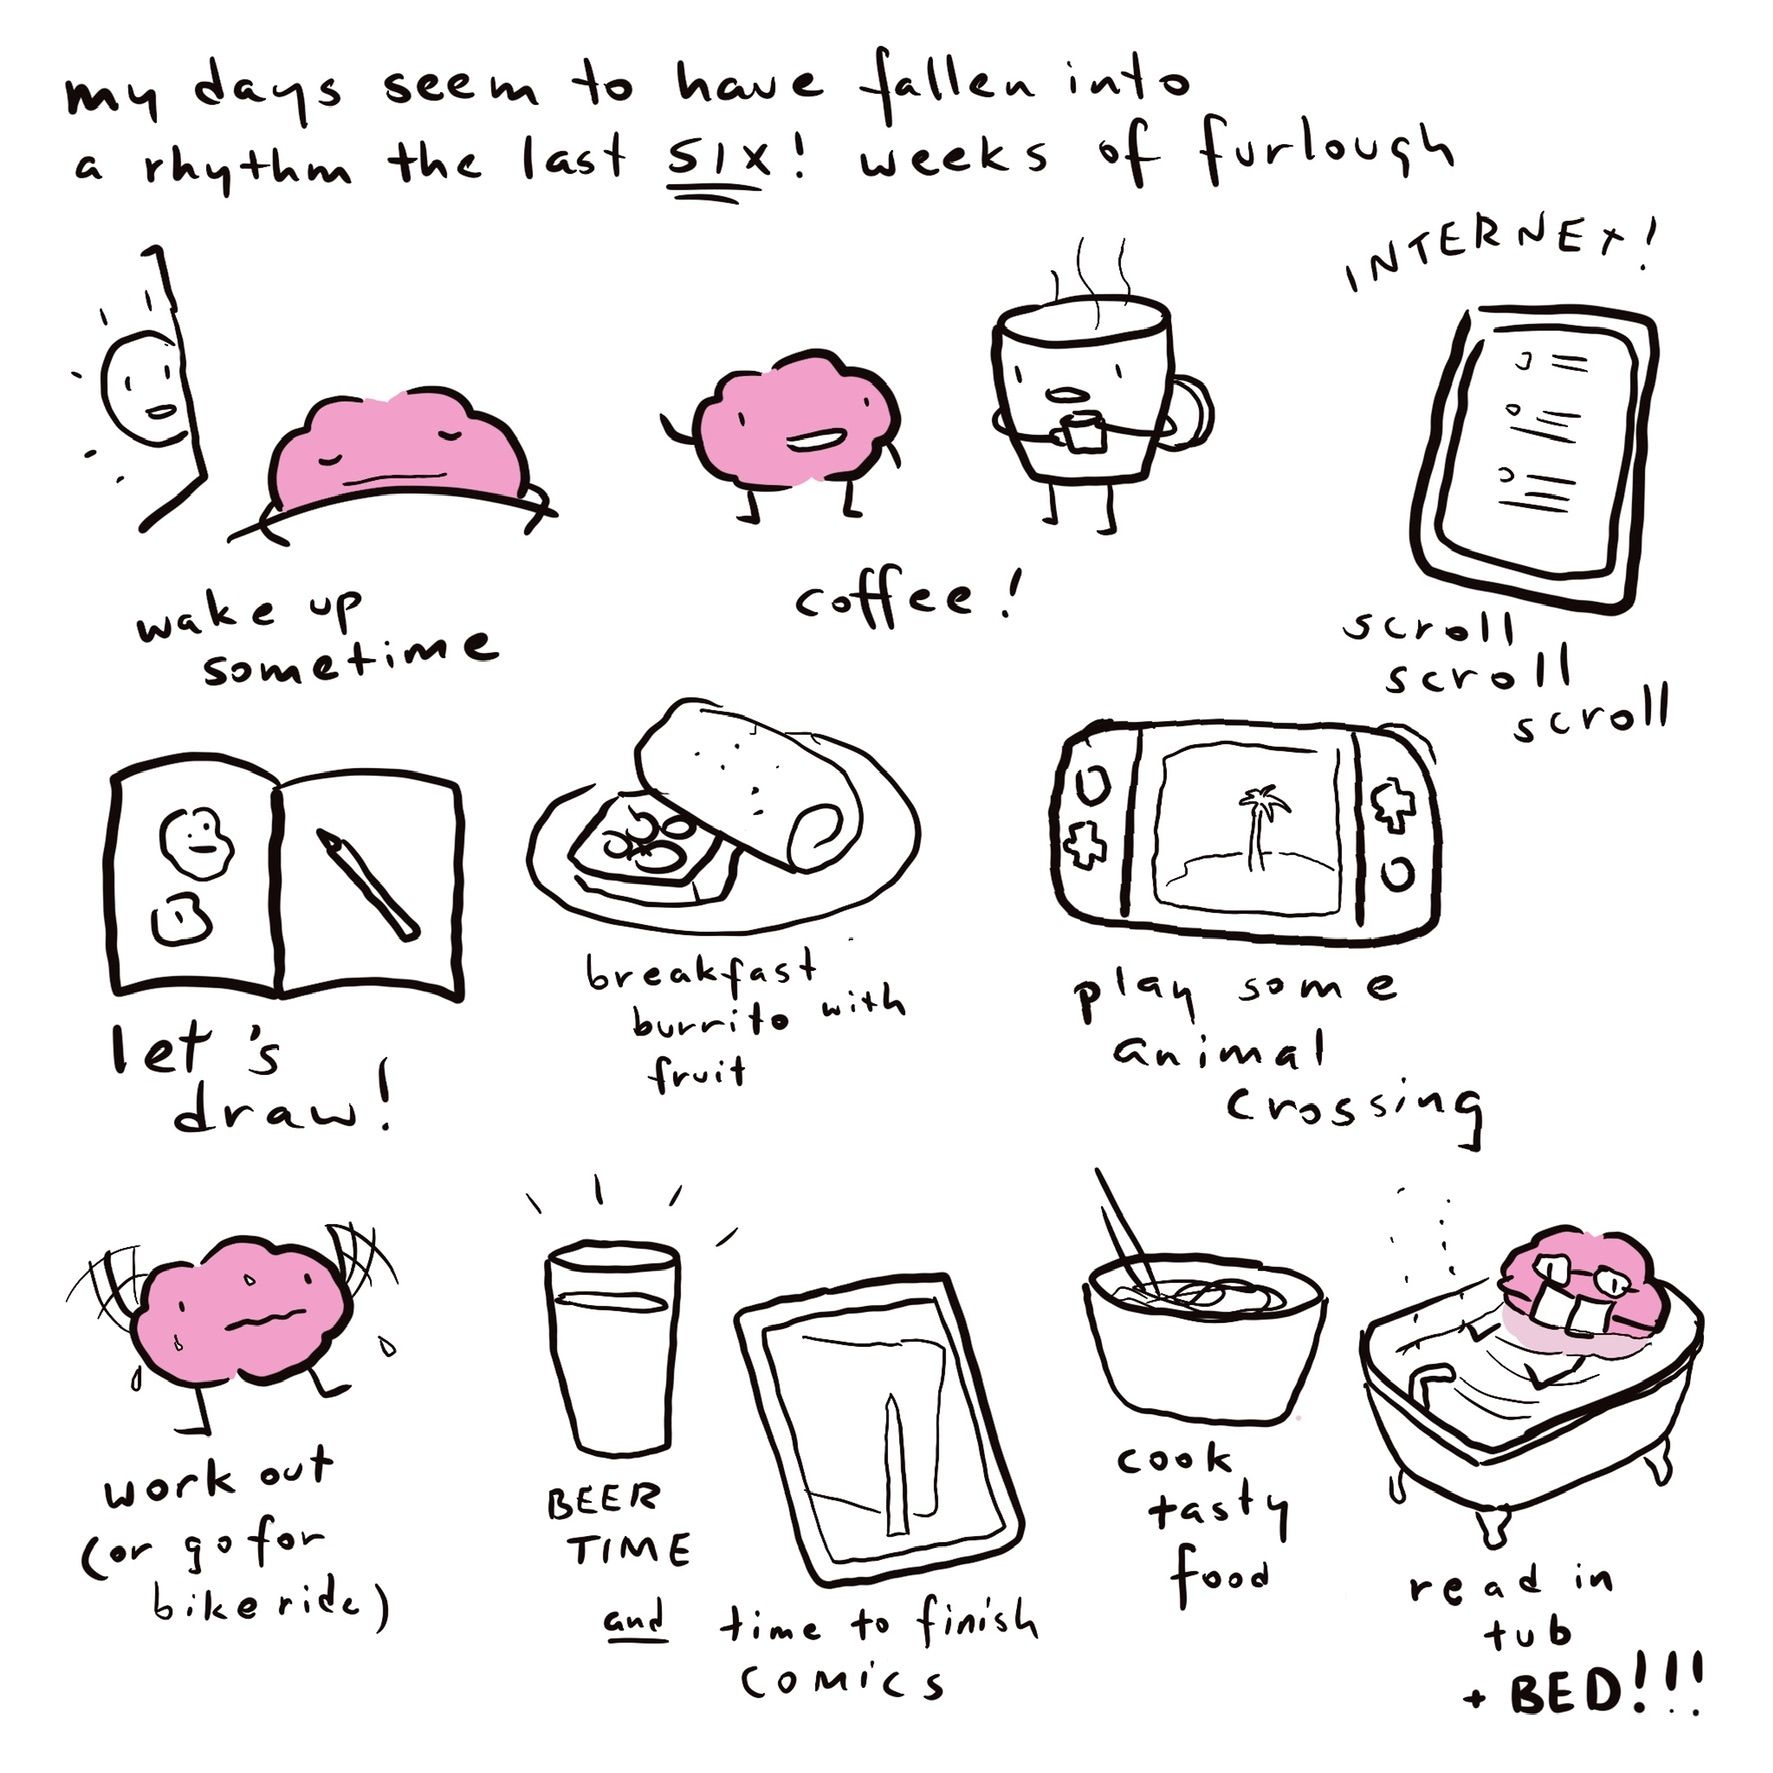 my days seem to have fallen into
a rhythm the last SIX! weeks of furlough
wake up
sometime
coffee!
INTERNET!
scroll
scroll
scroll
let's
draw!
breakfast
burrito with
fruit
play some
animal
crossing
work out
(or go for
bike ride)
BEER
TIME
and time to finish
COMICS
cook
tasty
food
read in
tub
+ BED!!!